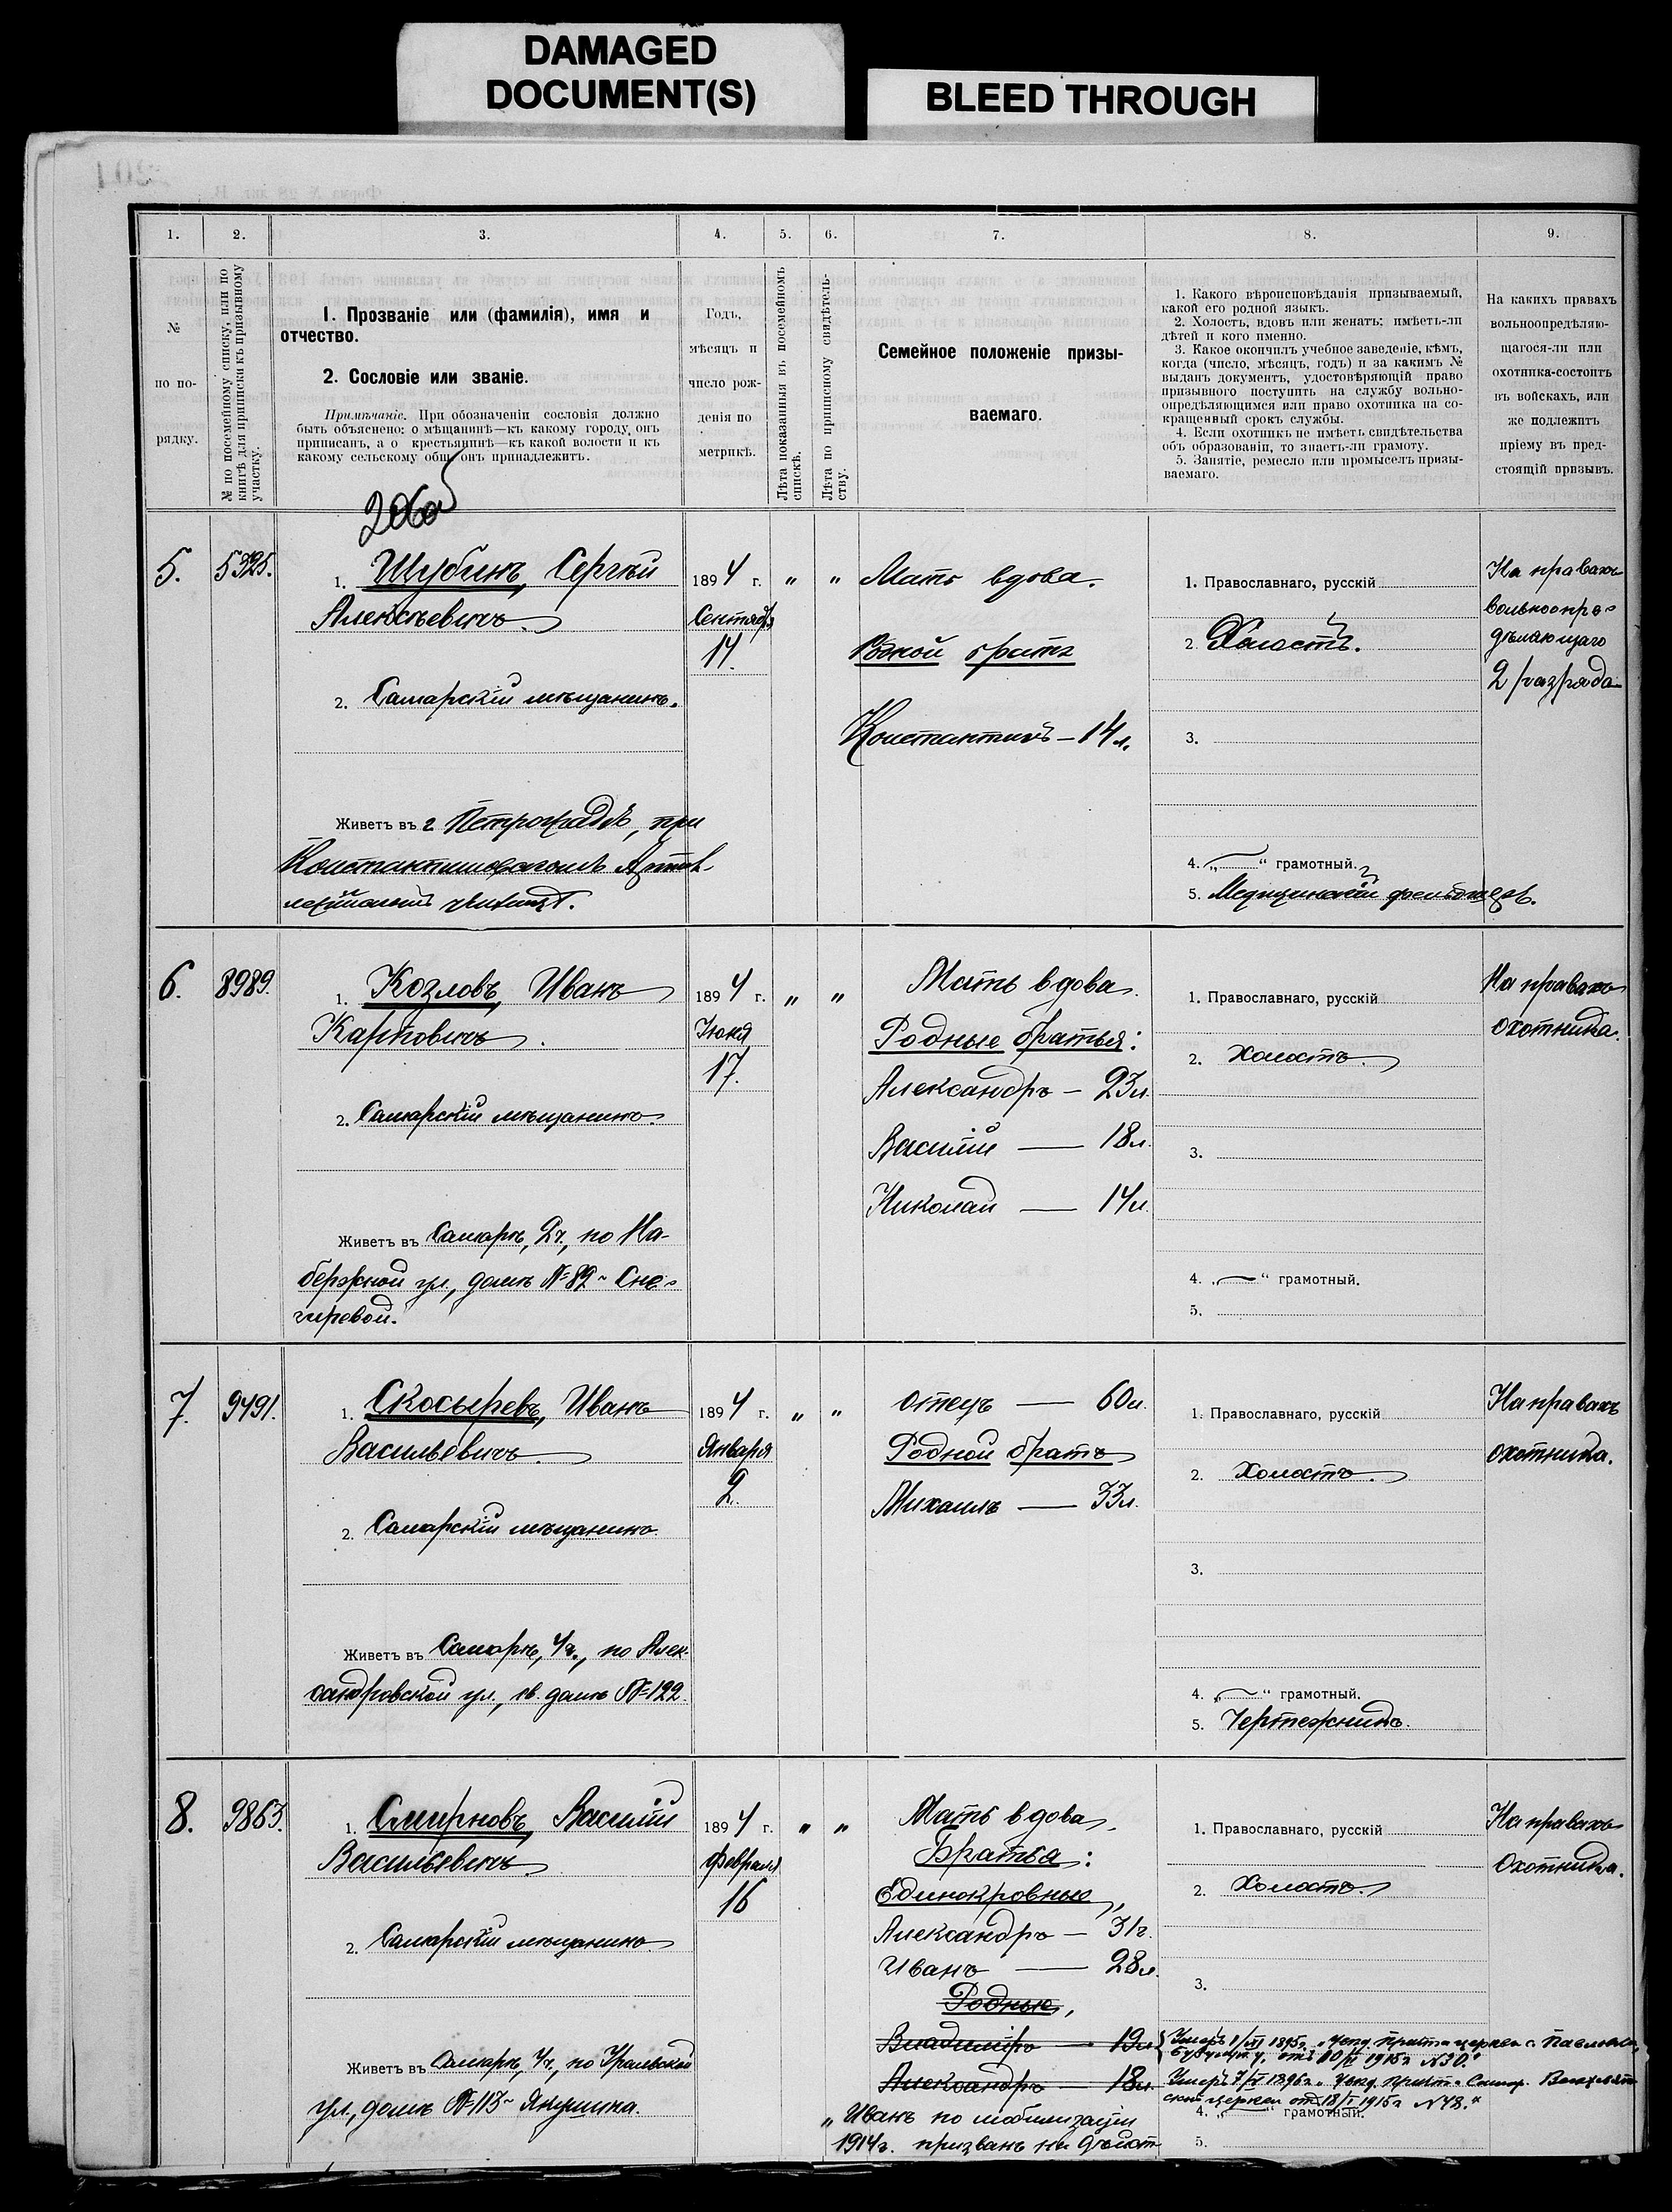 DAMAGED
DOCUMENT(S)
BLEED THROUGH
1. 2. 3. 4. 5. 6. 7. 8. 9.
№
по по-
рядку.
№ по посемейному списку, или по
книгѣ для приписки къ призывному
участку.
1. Прозваніе или (фамилія), имя и
отчество.
2. Сословіе или званіе.
Примѣчаніе. При обозначеніи сословія должно
быть объяснено: о мѣщанинѣ—къ какому городу, онъ
приписанъ, а о крестьянинѣ—къ какой волости и къ
какому сельскому общ. онъ принадлежитъ.
Годъ,
мѣсяцъ и
число рож-
денія по
метрикѣ.
Лѣта показанныя въ посемейномъ
спискѣ.
Лѣта по приписному свидѣтель-
ству.
Семейное положеніе призы-
ваемаго.
1. Какого вѣроисповѣданія призываемый,
какой его родной языкъ.
2. Холостъ, вдовъ или женатъ; имѣетъ-ли
дѣтей и кого именно.
3. Какое окончилъ учебное заведеніе, кѣмъ,
когда (число, мѣсяцъ, годъ) и за какимъ №
выданъ документъ, удостовѣряющій право
призывного поступить на службу вольно-
опредѣляющимся или право охотника на со-
кращенный срокъ службы.
4. Если охотникъ не имѣетъ свидѣтельства
объ образованіи, то знаетъ-ли грамоту.
5. Занятіе, ремесло или промыселъ призы-
ваемаго.
На какихъ правахъ
вольноопредѣляю-
щагося-ли или
охотника-состоитъ
въ войскахъ, или
же подлежитъ
пріему въ пред-
стоящій призывъ.
5. 5325.
1. Шубинъ, Сергѣй
Алексѣевичъ
2. Самарскій мѣщанинъ.
Живетъ въ г Петроградѣ, при
Константиновскомъ Артил-
лерійскомъ училищѣ.
1894 г. " "
Сентября
14.
Мать вдова.
Родной братъ
Константинъ — 14 л.
1. Православнаго, русскій
2. Холостъ.
3.
4. „ — “ грамотный.
5. Медицинскій фельдшеръ.
На правахъ
вольноопре-
дѣляющаго
2 разряда
6. 8989.
1. Козловъ, Иванъ
Карповичъ.
2. Самарскій мѣщанинъ.
Живетъ въ Самарѣ, 2ч., по На-
бережной ул., домъ № 82 Сне-
гиревой.
1894 г. " "
Іюня
17.
Мать вдова.
Родные братья:
Александръ — 23 л.
Василій — 18 л.
Николай — 14 л.
1. Православнаго, русскій
2. Холостъ.
3.
4. „ — “ грамотный.
5.
На правахъ
охотника.
7. 9491.
1. Скосыревъ, Иванъ
Васильевичъ.
2. Самарскій мѣщанинъ.
Живетъ въ Самарѣ, 4ч., по Алек-
сандровской ул., св. домъ № 122.
1894 г. " "
Января
2.
Отецъ — 60 л.
Родной братъ
Михаилъ — 33 л.
1. Православнаго, русскій
2. Холостъ.
3.
4. „ — “ грамотный.
5. Чертежникъ.
На правахъ
охотника.
8. 9863.
1. Смирновъ, Василій
Васильевичъ
2. Самарскій мѣщанинъ.
Живетъ въ Самарѣ, 4ч., по Уральской
ул., домъ № 113 Янушина.
1894 г. " "
Февраля
16
Мать вдова.
Братья:
Единокровные,
Александръ — 31 г.
Иванъ — 28 л.
Родные,
Владиміръ — 19 л.
Александръ — 18 л.
„Иванъ по мобилизаціи
1914 г. призванъ на дѣйст
1. Православнаго, русскій
2. Холостъ.
3.
Умеръ 1895 г. церкви с. Павловки,
1915 г № 30."
Умеръ 1896 г. Самар.
церкви отъ 1915 г № 48."
4. „ — “ грамотный.
5.
На правахъ
Охотника.